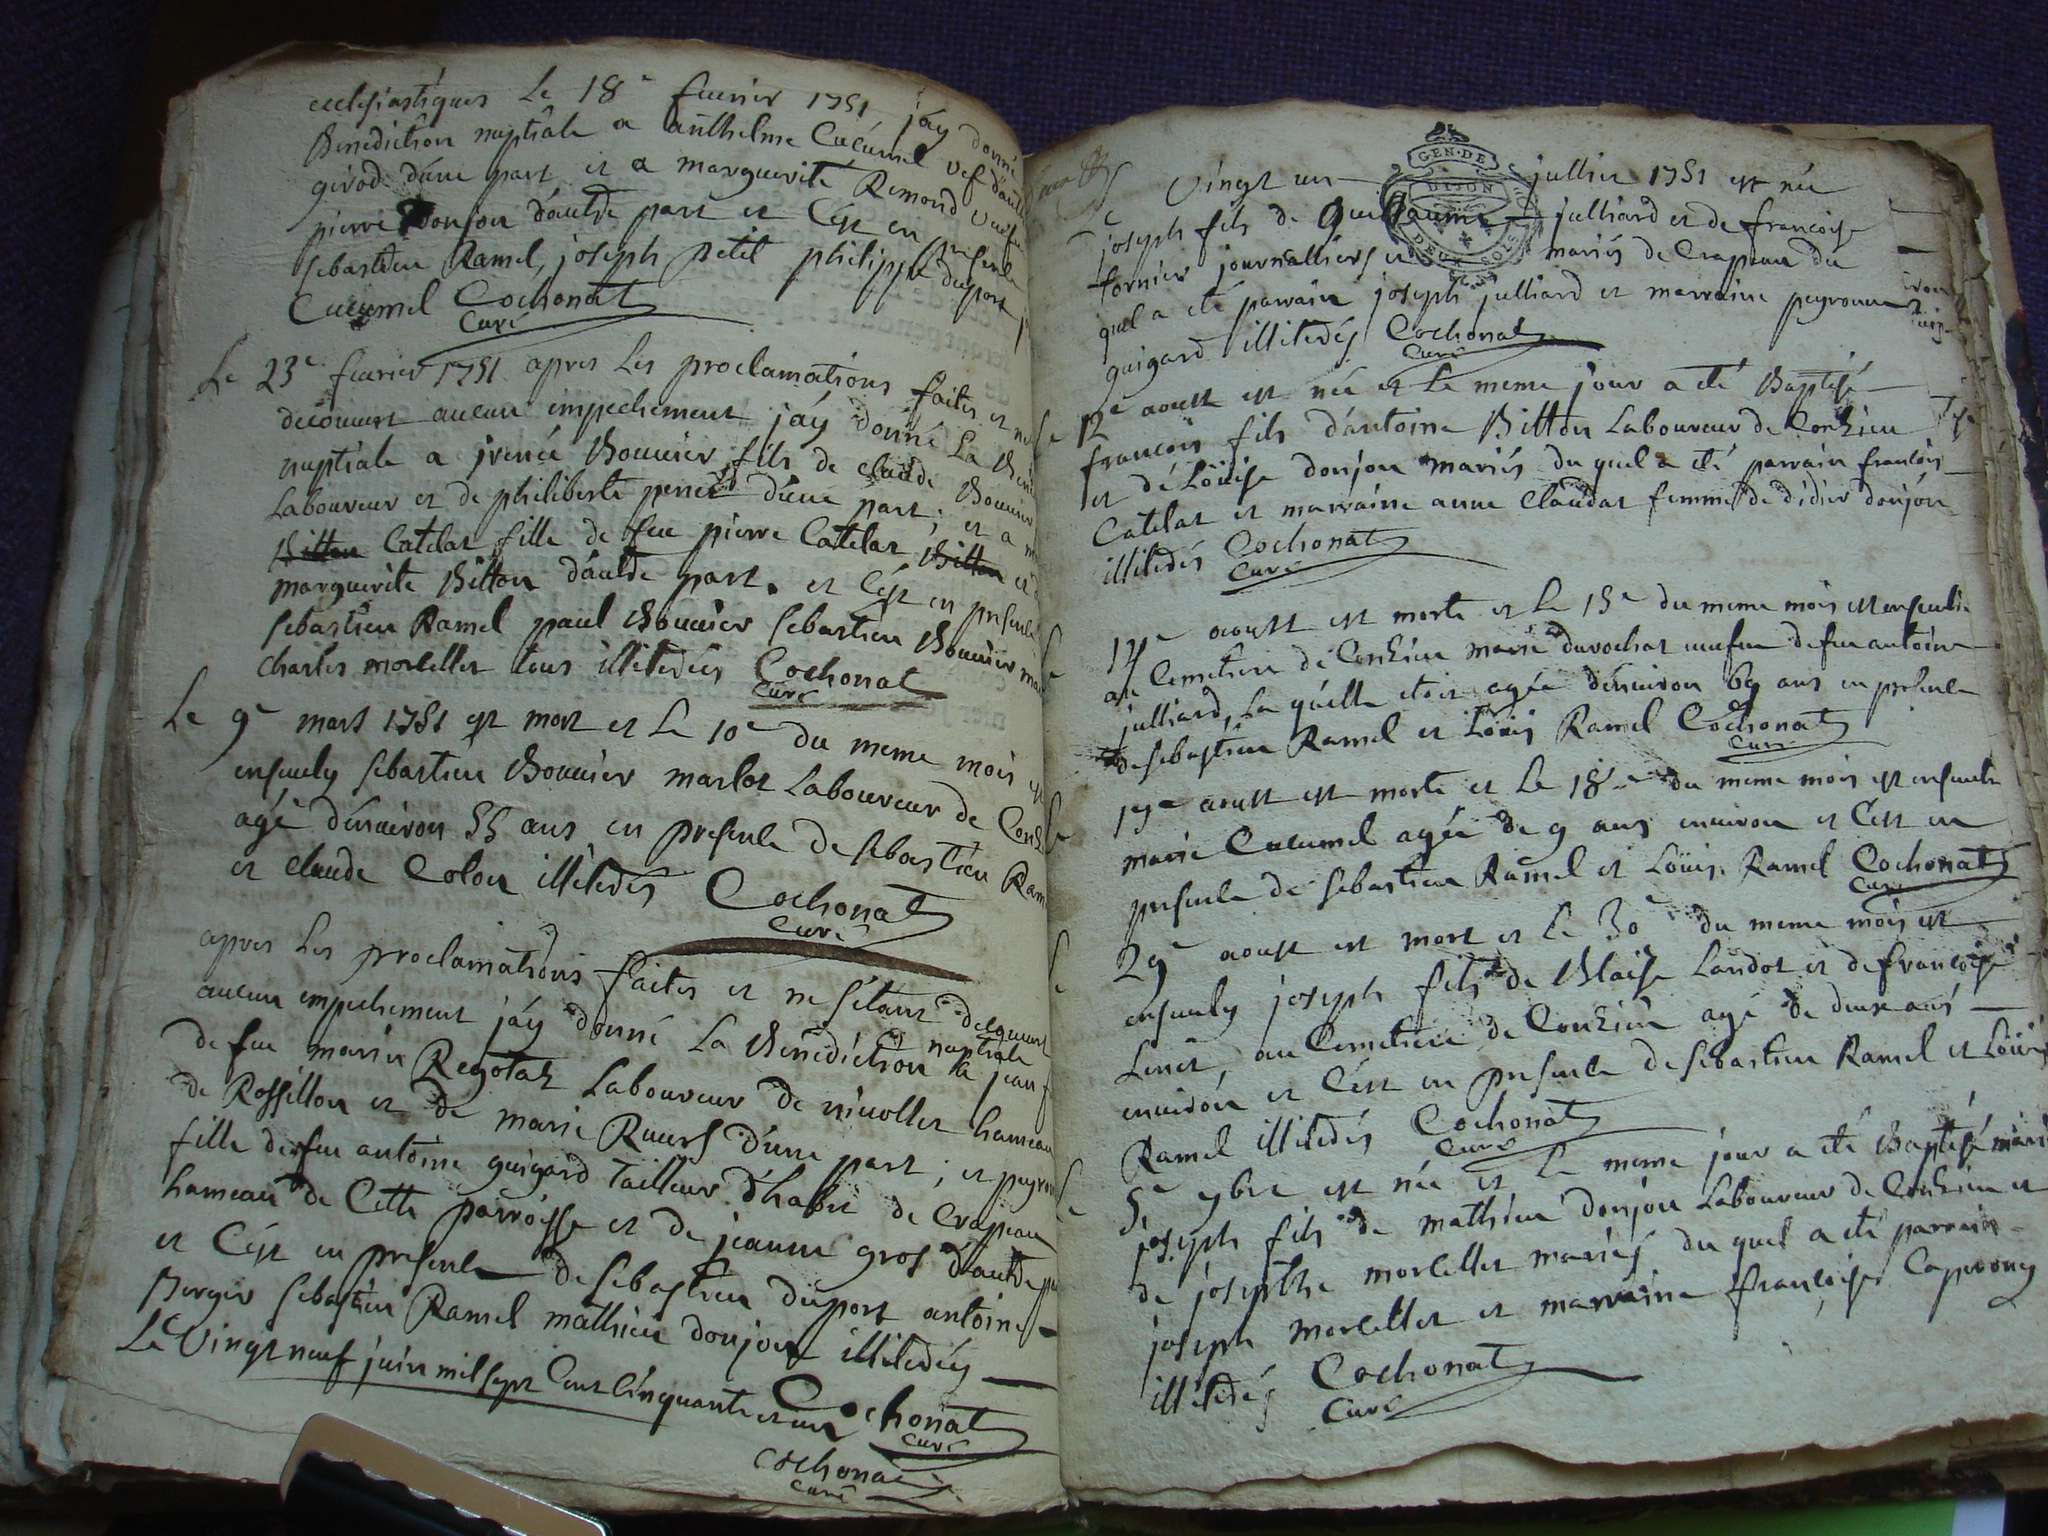 ecclesiastiques Le 18e feuvrier 1751 jáy donné
Benediction nuptiale a anthelme Cucumel vef d'anth
girod dúne part et a marguerite Remond veufve
pierre donjon dáultre part et Cést en presence
sebastien Ramel, joseph petit philippe duport
Cucumel Cochonat
Curé
Le 23e feuvrier 1751 apres Les proclamations faites et ne
decouvert aucun impechement jáy donné La Bene
nuptiale a irené Bouvier fils de claude Bouvier
Laboureur et de philiberte d'une part; et a
Bitton Catelat fille de feu pierre Catelat Bitton et d
marguerite Bitton dáultre part. et Cést en presence
sebastien Ramel paul Bouvier sebastien Bouvier
Charles morcellet tous illiterés Cochonat
Curé
Le 9e mars 1751 est mort et Le 10e du meme mois
ensevely sebastien Bouvier marlot Laboureur de Conz
agé dénviron 55 ans en presence de sebastien Ram
et claude Colon illiterés Cochonat
Curé
apres Les proclamations faites et ne sétant decouvert
aucun impechement jáy donné La Benediction nuptiale a jean
de feu marin Regotaz Laboureur de nivollet hameau
de Rossillon et de marie d'une part; et peyron
fille de feu antoine guigard tailleur d'habit de Crapeau
hameau de Cette parroisse et de jeanne gros d'aultre
et Cést en presence de sebastien duport antoine
Berger sebastien Ramel mathieu donjon illiterés
Le Vingt neuf juin mil sept Cent Cinquante et un Cochonat
Curé
Cochonat
Curé
GEN·DE
DIJON
DEUX SOLS
Vingt un juillet 1751 est né
joseph fils de Guillaume julliard et de francoise
fornier journalliers et mariés de Crapeau du
quel a eté parrain joseph julliard et marraine peyronne
guigard illiterés Cochonat
Curé
12e aoust est né et Le meme jour a eté Baptisé
francois fils dántoine Bitton Laboureur de Conzieu
et de Loüise donjon mariés du quel a eté parrain francois
Catelat et marraine anne Claudat femme de didier donjon
illiterés Cochonat
Curé
aoust est morte et Le 15e du meme mois est ensevelie
au Cemetiere de Conzieu marie durochat veufve de feu antoine
julliard, La quélle etoit agée dénviron 69 ans en presence
de sebastien Ramel et Loüis Ramel Cochonat
Curé
aoust est morte et Le 18e du meme mois est ensevelie
marie Cucumel agée de 9 ans environ et Cést en
presence de sebastien Ramel et Loüis Ramel Cochonat
Curé
29e aoust est mort et Le 30e du meme mois est
ensevely joseph fils de Blaise Landot et de francoise
au Cemetiere de Conzieu agé de deux ans
environ et Cést en presence de sebastien Ramel et Loüis
Ramel illiterés Cochonat
Curé
5e 9bre est né et Le meme jour a eté Baptisé
joseph fils de mathieu donjon Laboureur de Conzieu et
de josepthe morcellet mariés du quel a eté parrain
joseph morcellet et marraine françoise
illiterés Cochonat
Curé